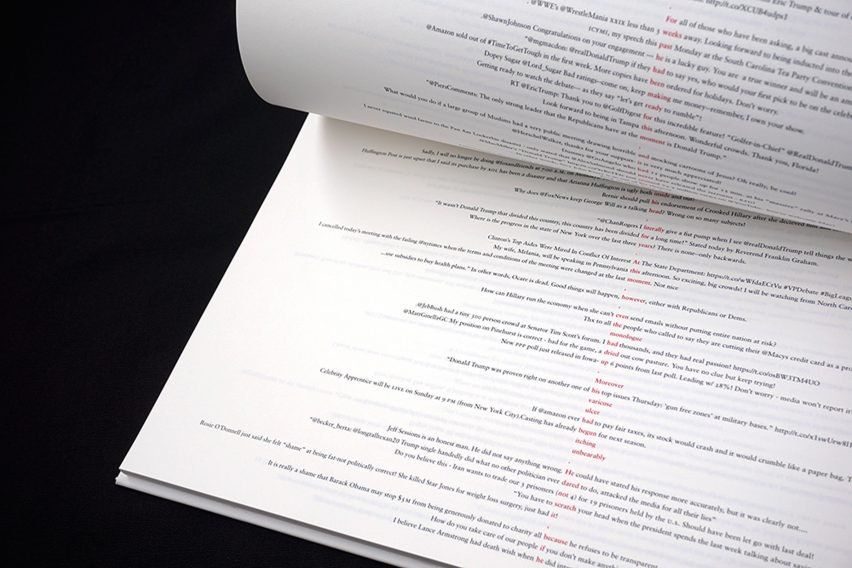 Eric Trump & tour of
http://t.co/XCUB4udps1
For all of those who have been asking, a big cast announ
. @WWE's @WrestleMania XXIX less than 3 weeks away. Looking forward to being inducted into the
ICYMI, my speech this past Monday at the South Carolina Tea Party Convention
.@ShawnJohnson Congratulations on your engagement — he is a lucky guy. You are a true winner and will be an am
"@mgmacdon: @realDonaldTrump if they had to say yes, who would your first pick to be on the celeb
@Amazon sold out of #TimeToGetTough in the first week. More copies have been ordered for holidays. Don't worry.
Dopey Sugar @Lord_Sugar Bad ratings--come on, keep making me money--remember, I own your show.
Getting ready to watch the debate— as they say "let's get ready to rumble"!
RT @EricTrump: Thank you to @GolfDigest for this incredible feature! "Golfer-in-Chief" @RealDonaldTrump
Look forward to being in Tampa this afternoon. Wonderful crowds. Thank you, Florida!
"@PiersComments: The only strong leader that the Republicans have at the moment is Donald Trump."
,
What would you do if a large group of Muslims had a very public meeting drawing horrible and mocking cartoons of Jesus? Oh really, be cool!
@HerschelWalker, thanks for your support, it is very much appreciated!
Sadly, I will no longer be doing @foxandfriends at 7:00 A.M. on
Huffington Post is just upset that I said its purchase by AOL has been a disaster and that Arianna Huffington is ugly both inside and out!
Bernie should pull his endorsement of Crooked Hillary after she deceived him
Why does @FoxNews keep George Will as a talking head? Wrong on so many subjects!
,
"@ChanRogers I literally give a fist pump when I see @realDonaldTrump tell things the w
"It wasn't Donald Trump that divided this country, this country has been divided for a long time!" Stated today by Reverend Franklin Graham.
Where is the progress in the state of New York over the last three years? There is none--only backwards.
Clinton's Top Aides Were Mired In Conflict Of Interest At The State Department: https://t.co/wWfdaECtVu #VPDebate #BigLeag
My wife, Melania, will be speaking in Pennsylvania this afternoon. So exciting, big crowds! I will be watching from North Car
I cancelled today's meeting with the failing @nytimes when the terms and conditions of the meeting were changed at the last moment. Not nice
,
...use subsidies to buy health plans." In other words, Ocare is dead. Good things will happen, however, either with Republicans or Dems.
,
How can Hillary run the economy when she can't even send emails without putting entire nation at risk?
Thx to all the people who called to say they are cutting their @Macys credit card as a pro
monologue
.@JebBush had a tiny 300 person crowd at Senator Tim Scott's forum. I had thousands, and they had real passion! https://t.co/osBW3TM4UO
@MattGinellaGC My position on Pinehurst is correct - bad for the game, a dried out cow pasture. You have no clue but keep trying!
New PPP poll just released in Iowa- up 6 points from last poll. Leading w/ 28%! Don't worry - media won't report it
.
Moreover
"Donald Trump was proven right on another one of his top issues Thursday: 'gun free zones' at military bases."
varicose
ulcer
If @amazon ever had to pay fair taxes, its stock would crash and it would crumble like a paper bag. T
Celebrity Apprentice will be LIVE on Sunday at 9 PM (from New York City).Casting has already begun for next season.
itching
unbearably
.
Jeff Sessions is an honest man. He did not say anything wrong. He could have stated his response more accurately, but it was clearly not....
"@becker_berta: @longtalltexan20 Trump single handedly did what no other politician ever dared to do, attacked the media for all their lies"
Do you believe this - Iran wants to trade our 3 prisoners (not 4) for 19 prisoners held by the U.S. Should have been let go with last deal!
"You have to scratch your head when the president spends the last week talking about savi
Rosie O'Donnell just said she felt "shame" at being fat-not politically correct! She killed Star Jones for weight loss surgery, just had it!
,
It is really a shame that Barack Obama may stop $5M from being generously donated to charity all because he refuses to be transparent.
How do you take care of our people if you don't make anything
I believe Lance Armstrong had death wish when he did